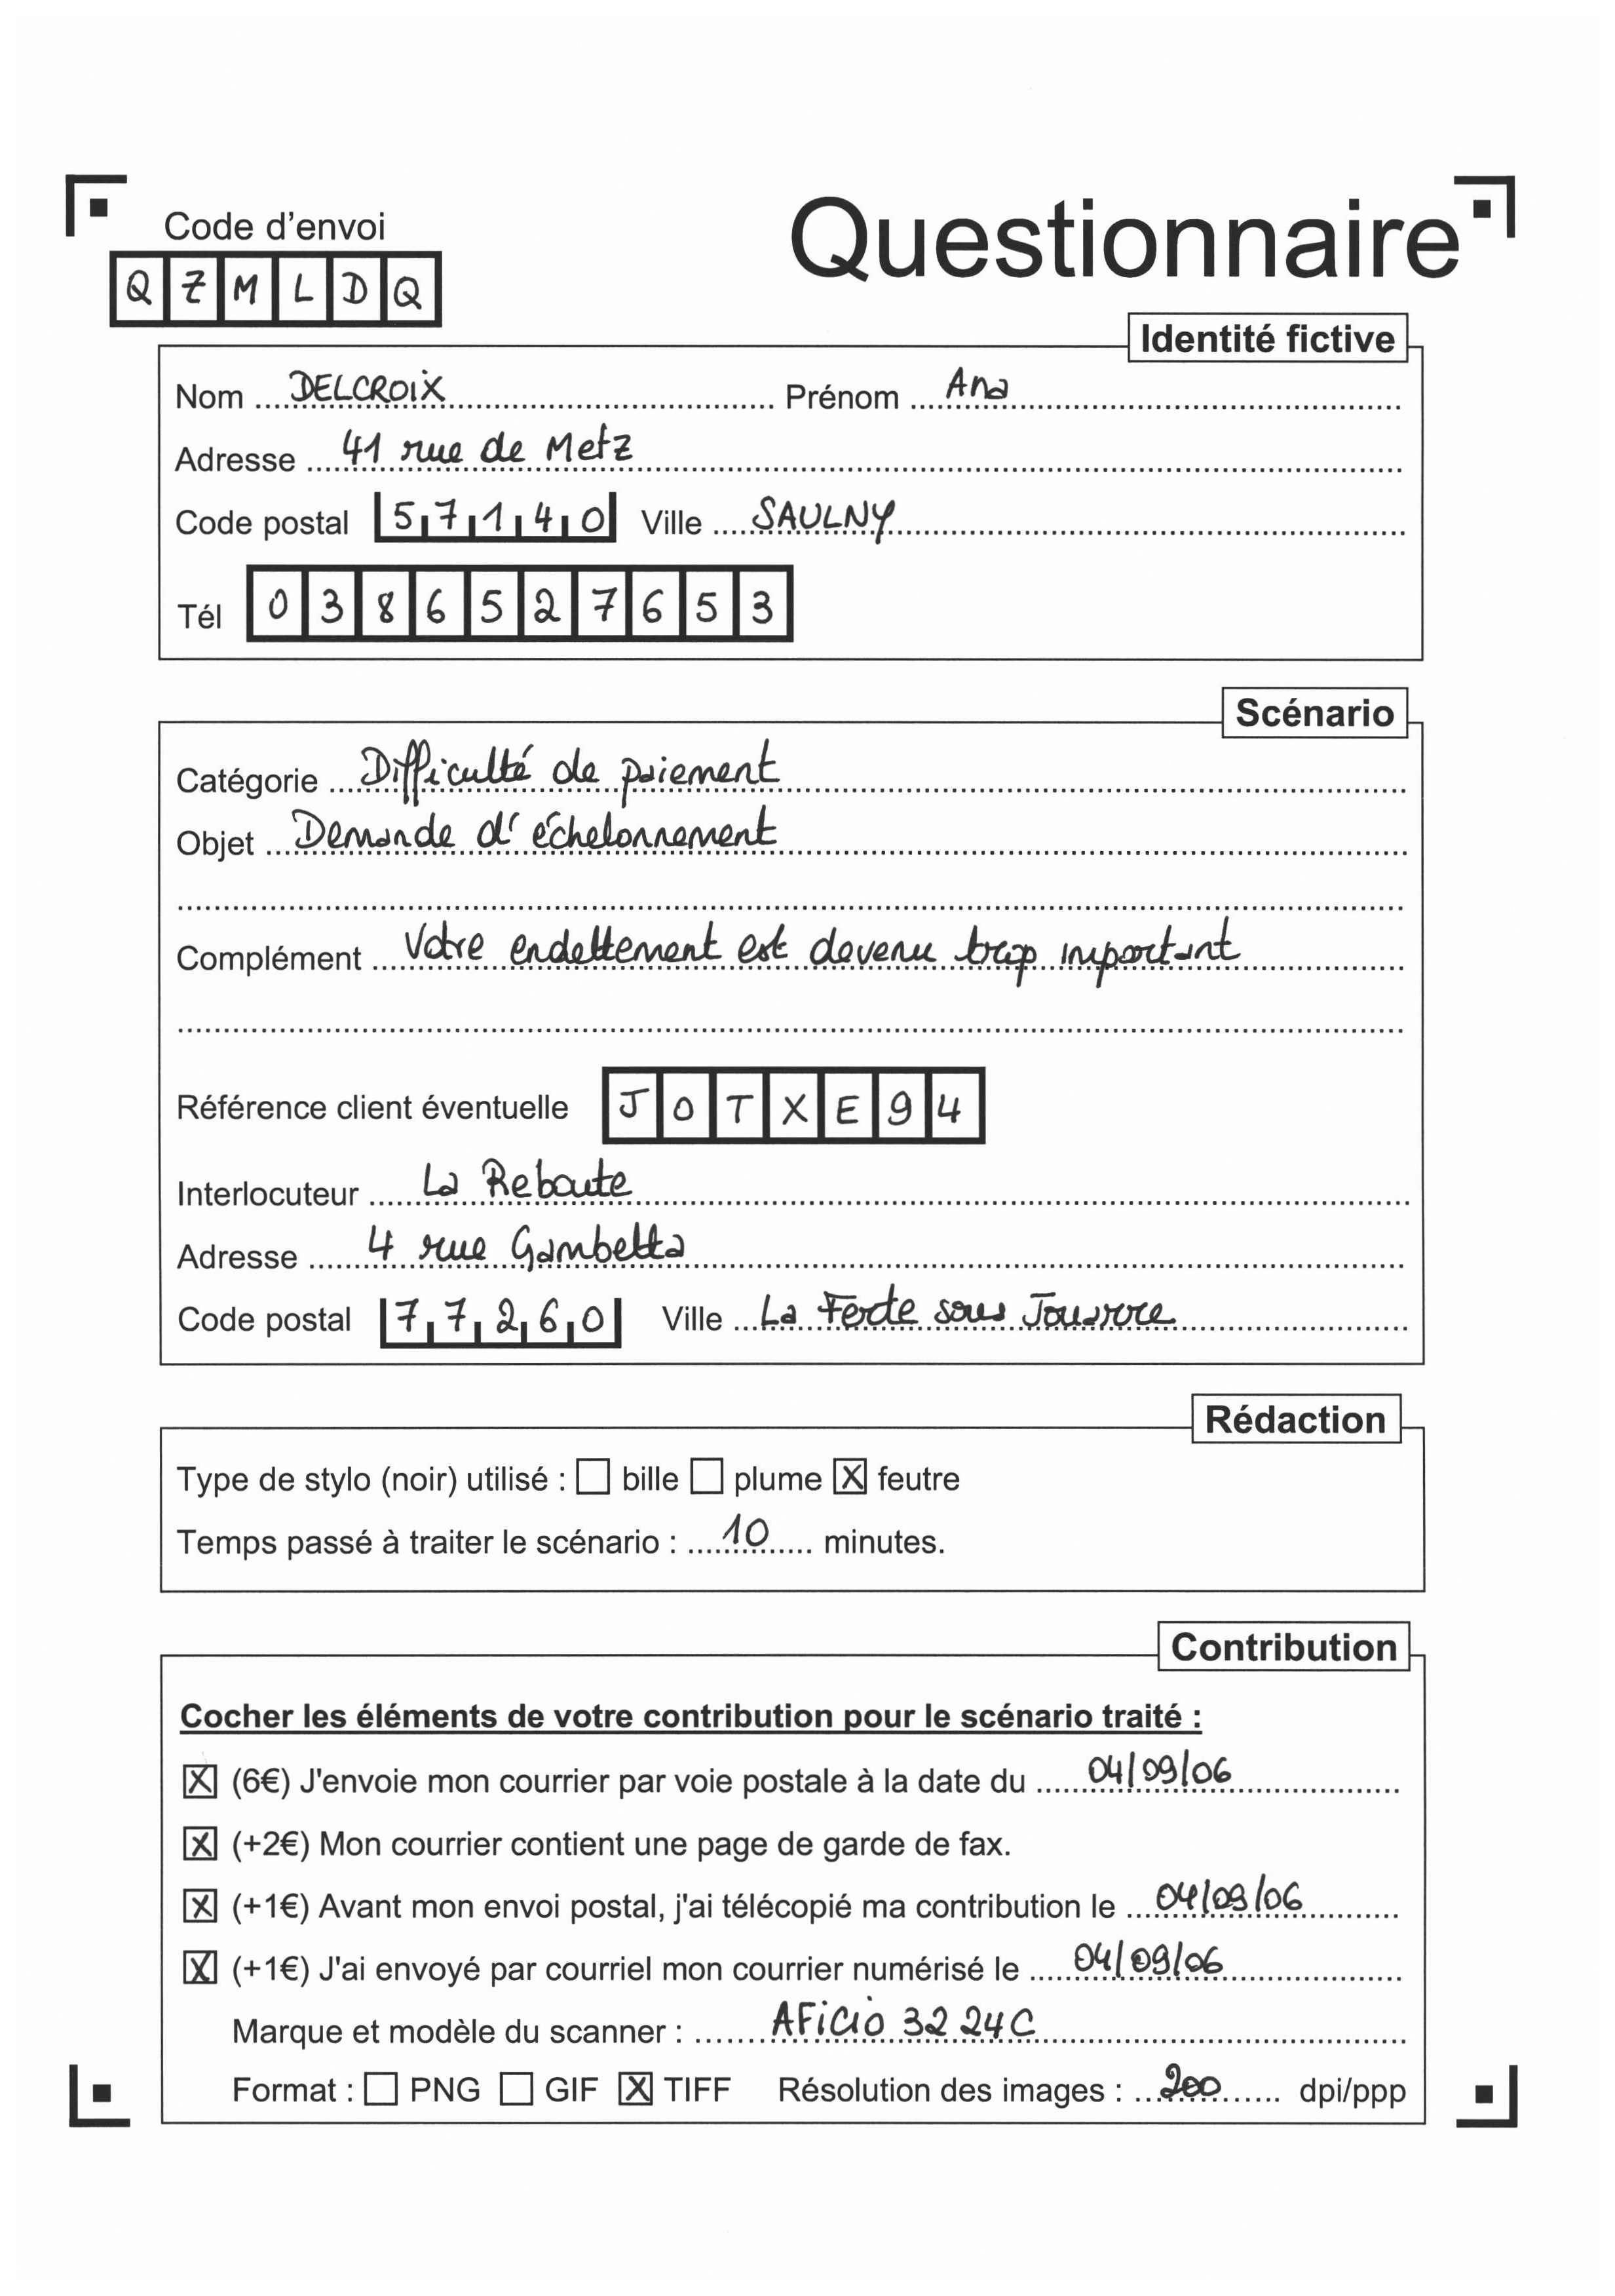 Code d'envoi
Questionnaire
Q Z M L D Q
Identité fictive
Nom DELCROIX Prénom Ana
Adresse 41 rue de Metz
Code postal 57140 Ville SAULNY
Tél 0386527653
Scénario
Catégorie Difficulté de paiement
Objet Demande d'échelonnement
Complément Votre endettement est devenu trop important
Référence client éventuelle JOTXE94
Interlocuteur La Reboute
Adresse 4 rue Gambetta
Code postal 77260 Ville La Ferte sous Jouarre
Rédaction
Type de stylo (noir) utilisé : ☐ bille ☐ plume ☒ feutre
Temps passé à traiter le scénario : 10 minutes.
Contribution
Cocher les éléments de votre contribution pour le scénario traité :
☒ (6€) J'envoie mon courrier par voie postale à la date du 04/09/06
☒ (+2€) Mon courrier contient une page de garde de fax.
☒ (+1€) Avant mon envoi postal, j'ai télécopié ma contribution le 04/09/06
☒ (+1€) J'ai envoyé par courriel mon courrier numérisé le 04/09/06
Marque et modèle du scanner : AFiCiO 3224C
Format : ☐ PNG ☐ GIF ☒ TIFF Résolution des images : 200 dpi/ppp